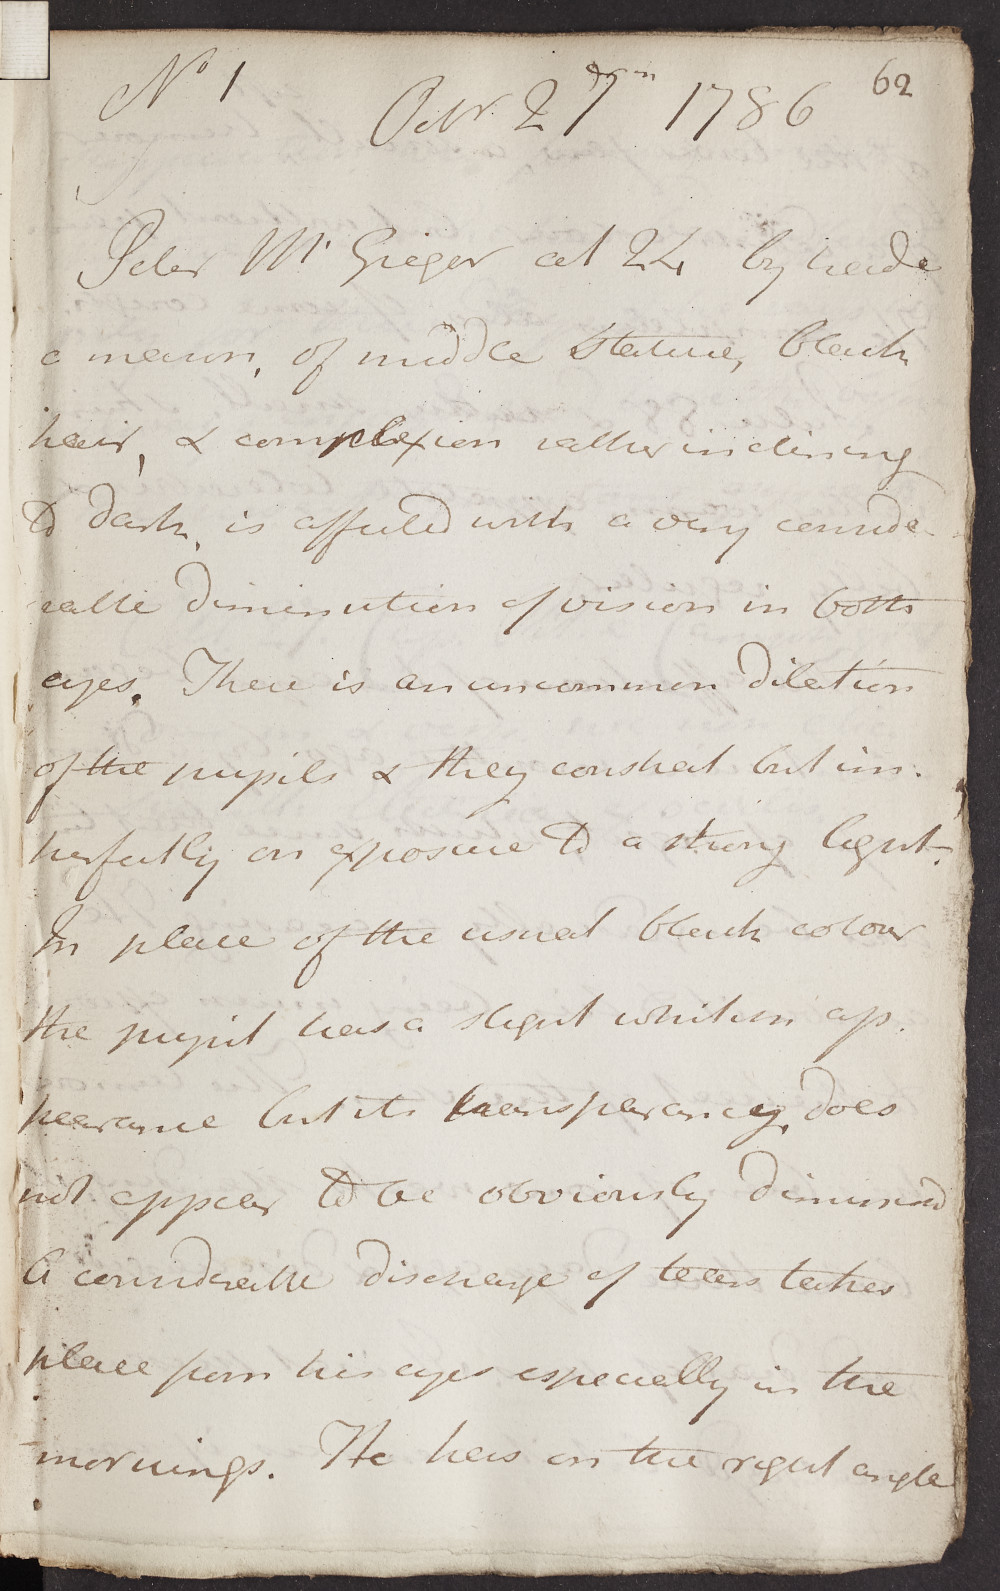 No 1
62
Octr. 27 1786
Peter Mc Gregor aet 24 by trade
a mason, of middle stature, black
hair, & complexion rather inclining
to dark, is affected with a very conside
rable diminution of vision in both
eyes. There is an uncommon dilation
of the pupils & they contract but im-
perfectly on exposure to a strong light.
In place of the usual black colour
the pupil has a slight whitish ap-
pearance but its transparency, does
not appear to be obviously diminished
A considerable discharge of tears takes
place from his eyes especially in the
mornings. He has on the right angle